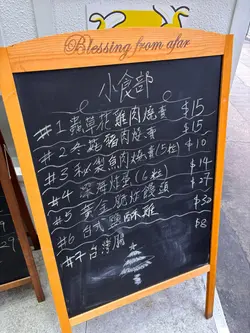 Blessing from afar
小食部
#1 蟲草花雞肉燒賣 $15
#2 冬菇豬肉燒賣 $15
#3 秘製魚肉燒賣(5粒) $10
#4 深海炸魚(6粒) $14
#5 黃金 饅頭 $27
#6 台式鹽酥雞 $30
#7 台灣腸 $8